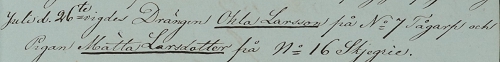 Juli d. 26te vigdes Drängen Ohla Larsson på No 7 Tågarp och
Pigan Mätta Larsdotter på No 16 Skegrie.